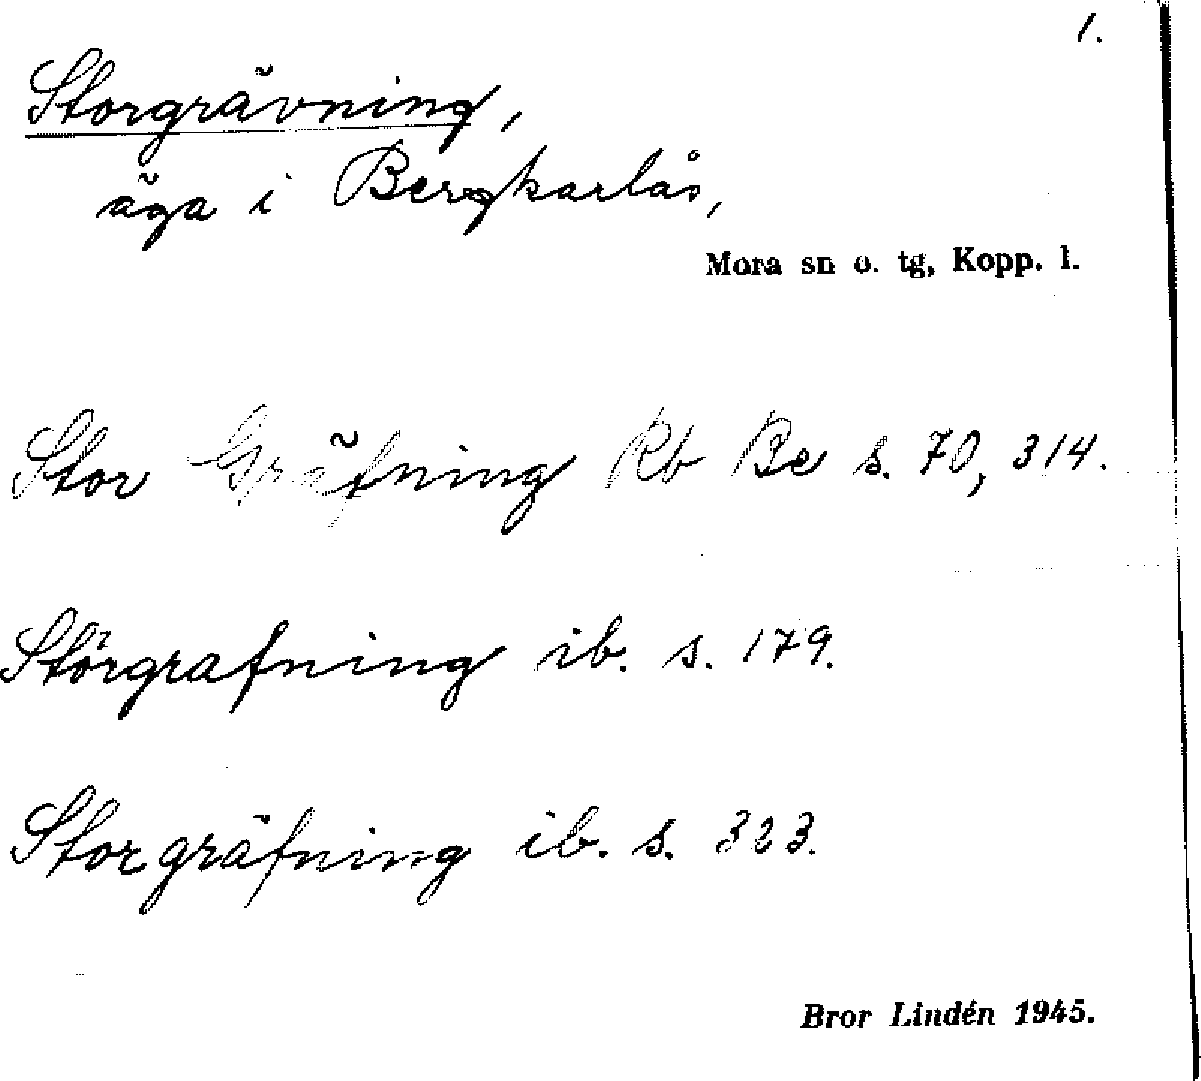 1.
Storgrävning,
äga i Bergkarlås,
Mora sn o. tg, Kopp. l.
Stor Gräfning Rb Be s. 70, 314.
Störgrafning ib. s. 179.
Storgräfning ib. s. 323.
Bror Lindén 1945.